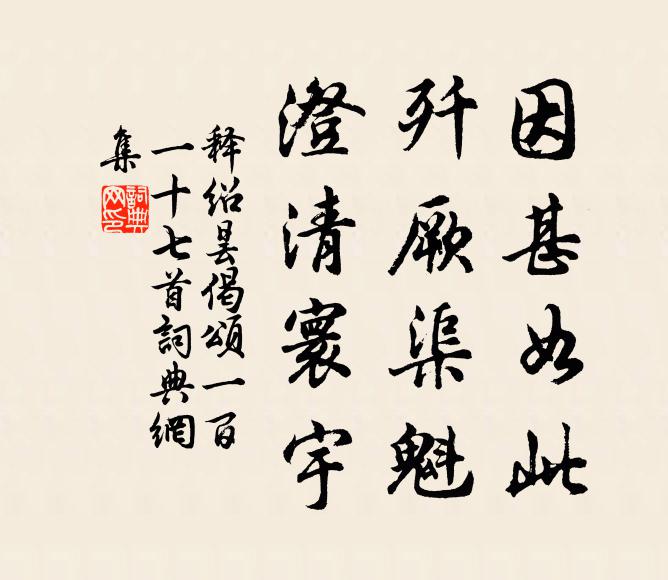 因甚如此
歼厥渠魁
澄清寰宇
释绍昙偈颂一百
一十七首詞典網
集
詞典網印